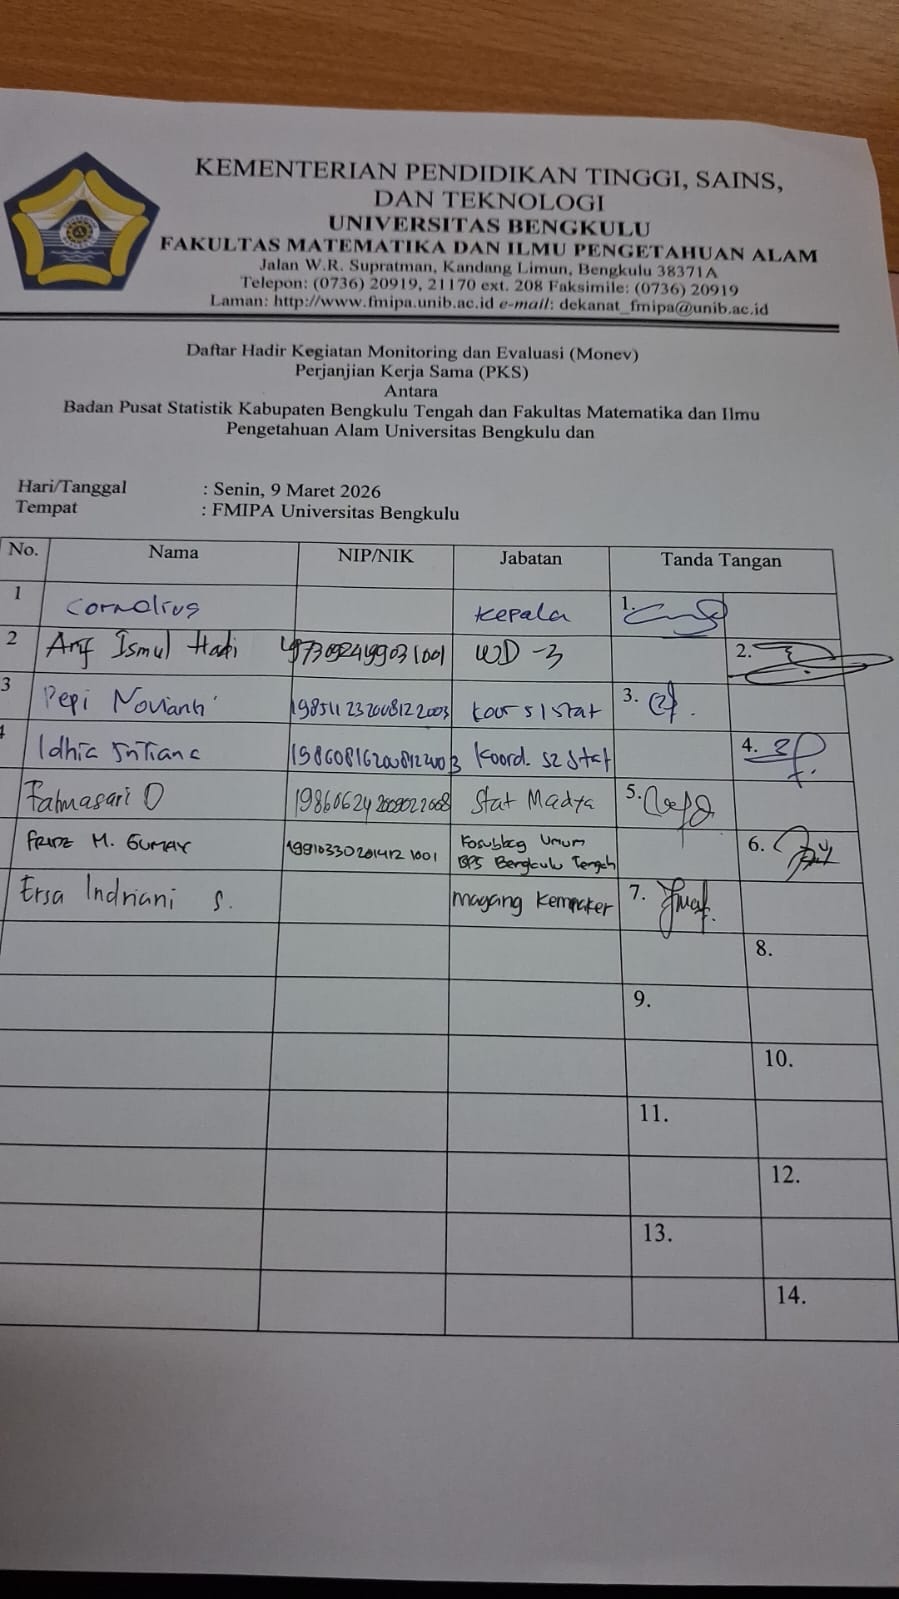 KEMENTERIAN PENDIDIKAN TINGGI, SAINS,
DAN TEKNOLOGI
UNIVERSITAS BENGKULU
FAKULTAS MATEMATIKA DAN ILMU PENGETAHUAN ALAM
Jalan W.R. Supratman, Kandang Limun, Bengkulu 38371A
Telepon: (0736) 20919, 21170 ext. 208 Faksimile: (0736) 20919
Laman: http://www.fmipa.unib.ac.id e-mail: dekanat_fmipa@unib.ac.id
Daftar Hadir Kegiatan Monitoring dan Evaluasi (Monev)
Perjanjian Kerja Sama (PKS)
Antara
Badan Pusat Statistik Kabupaten Bengkulu Tengah dan Fakultas Matematika dan Ilmu
Pengetahuan Alam Universitas Bengkulu dan
Hari/Tanggal : Senin, 9 Maret 2026
Tempat : FMIPA Universitas Bengkulu
No. Nama NIP/NIK Jabatan Tanda Tangan
1 Cornelius Kepala 1.
2 Arif Ismul Hadi WD-3 2.
3 Pepi Novianti 198511232008122003 S1 Stat 3.
Idhia 198608162008122003 Koord. S2 Stat 4.
Fatmasari D Stat Madya 5.
M. GUMAY 199103302014121001 Kasubbag Umum 6.
BPS Bengkulu Tengah
Ersa Indriani S. Magang Kemnaker 7.
8.
9.
10.
11.
12.
13.
14.